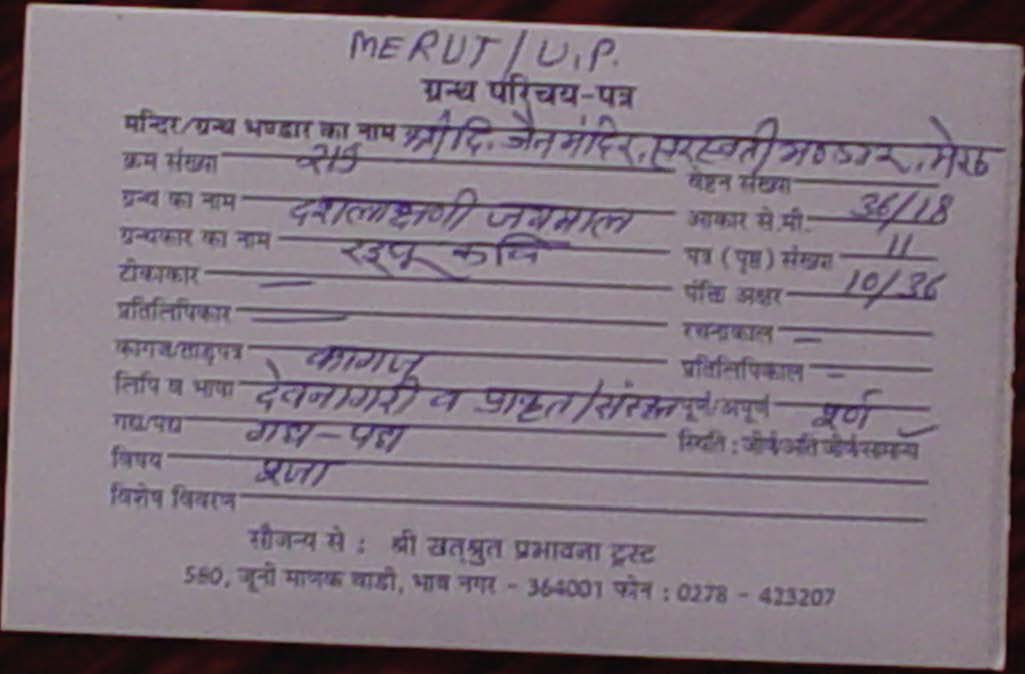 MERUT / U.P.
ग्रन्थ परिचय-पत्र
मन्दिर/ग्रन्थ भण्डार का नाम श्री दि. जैन मंदिर, सरस्वती भण्डार, मेरठ
क्रम संख्या वेष्टन संख्या
ग्रन्थ का नाम दशलाक्षणी जयमाल आकार से.मी. 36/18
ग्रन्थकार का नाम रइधू कवि पत्र (पृष्ठ) संख्या 11
टीकाकार — पंक्ति अक्षर 10/36
प्रतिलिपिकार — रचनाकाल —
कागज/ताड़पत्र कागज प्रतिलिपिकाल —
लिपि व भाषा देवनागरी व प्राकृत/संस्कृत पूर्ण/अपूर्ण पूर्ण
गद्य/पद्य गद्य-पद्य स्थिति : जीर्ण/अति जीर्ण/सामान्य ✓
विषय पूजा
विशेष विवरण
सौजन्य से : श्री सत्श्रुत प्रभावना ट्रस्ट
580, जूनी माणक वाडी, भाव नगर - 364001 फोन : 0278 - 423207